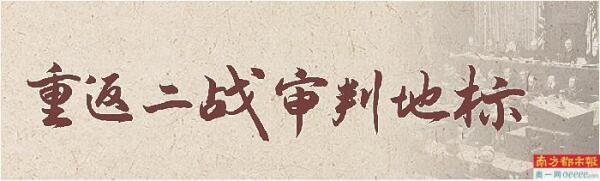 重返二战审判地标
南方都市報
奥一网oeeee.com